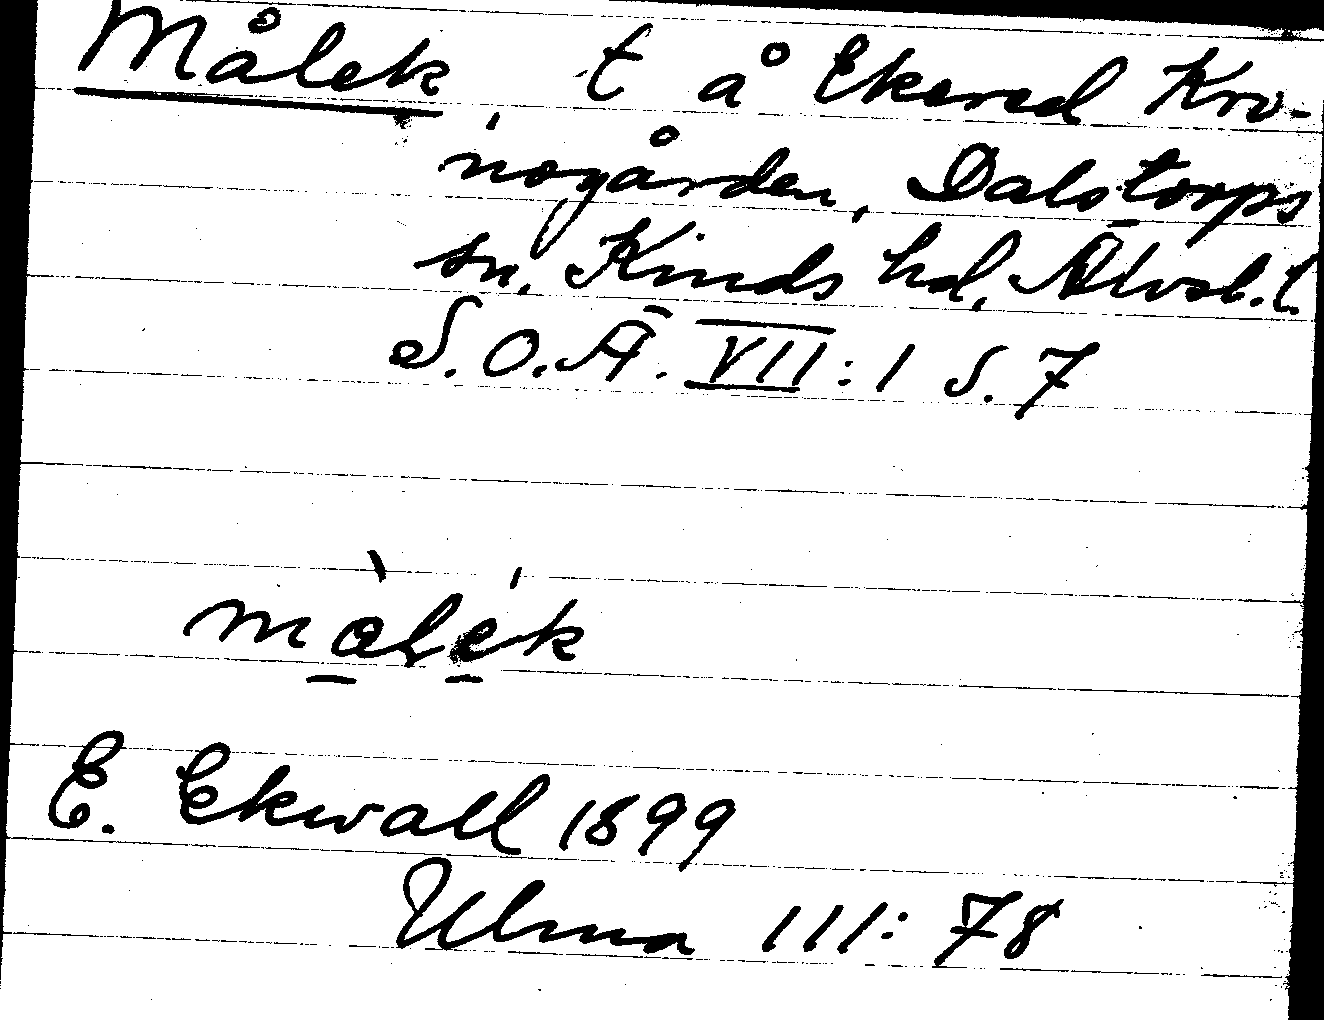 Målek, t å Ekered Kro-
nogården, Dalstorps
sn, Kinds hd, Älvsb.l.
S.O.Ä. VII:1 s.7
målek
E. Ekwall 1899
Ulma 111:78